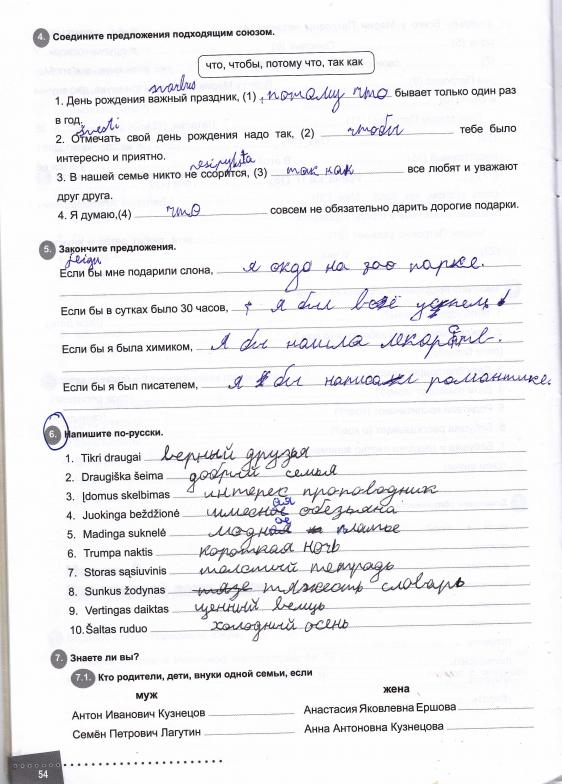 4. Соедините предложения подходящим союзом.
что, чтобы, потому что, так как
svarbus
1. День рождения важный праздник, (1) , потому что бывает только один раз
в год.
švęsti
2. Отмечать свой день рождения надо так, (2) чтобы тебе было
интересно и приятно.
nesipyksta
3. В нашей семье никто не ссорится, (3) так как все любят и уважают
друг друга.
4. Я думаю,(4) что совсем не обязательно дарить дорогие подарки.
5. Закончите предложения.
jeigu
Если бы мне подарили слона, я на зоо парке.
Если бы в сутках было 30 часов, я бы всё
Если бы я была химиком, я бы нашла
Если бы я был писателем, я бы романтике.
6. Напишите по-русски.
1. Tikri draugai верный друзья
2. Draugiška šeima добрый семья
3. Įdomus skelbimas интерес проповодник
4. Juokinga beždžionė обезьяна
5. Madinga suknelė платье
6. Trumpa naktis короткая ночь
7. Storas sąsiuvinis толстый тетрадь
8. Sunkus žodynas тяжесть словарь
9. Vertingas daiktas ценный вещь
10. Šaltas ruduo холодный осень
7. Знаете ли вы?
7.1. Кто родители, дети, внуки одной семьи, если
муж жена
Антон Иванович Кузнецов Анастасия Яковлевна Ершова
Семён Петрович Лагутин Анна Антоновна Кузнецова
54